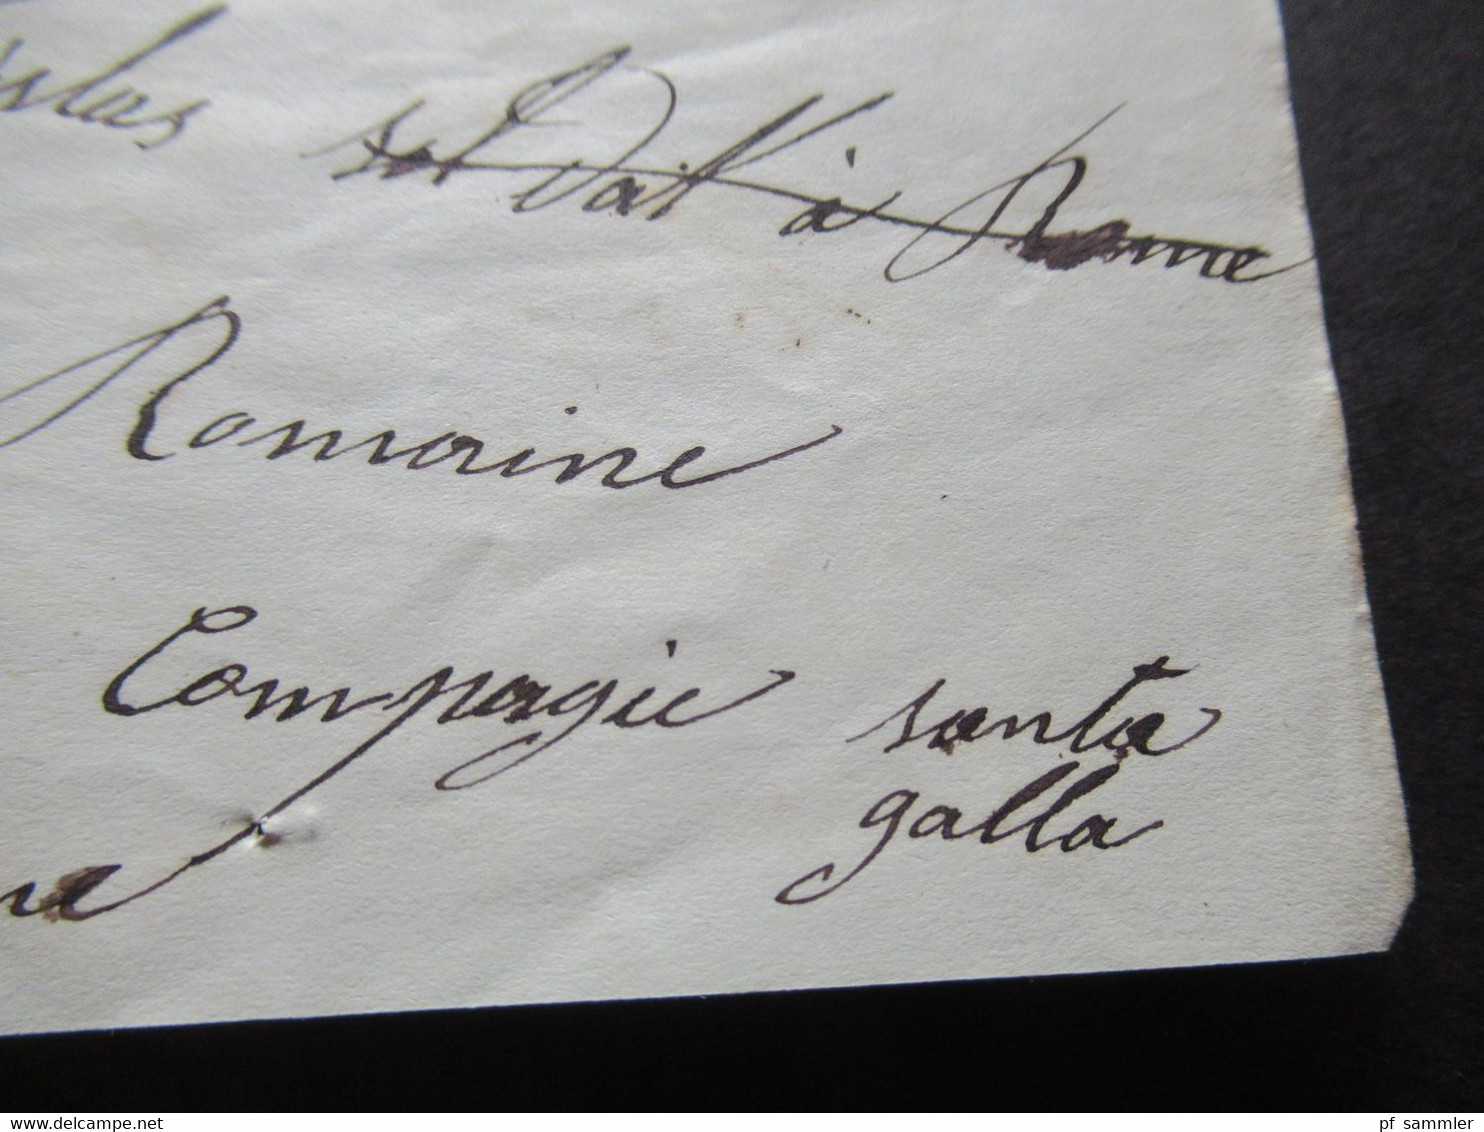 soldat à Rome
Romaine
Compagie santa
galla
www.delcampe.net
pf_sammler